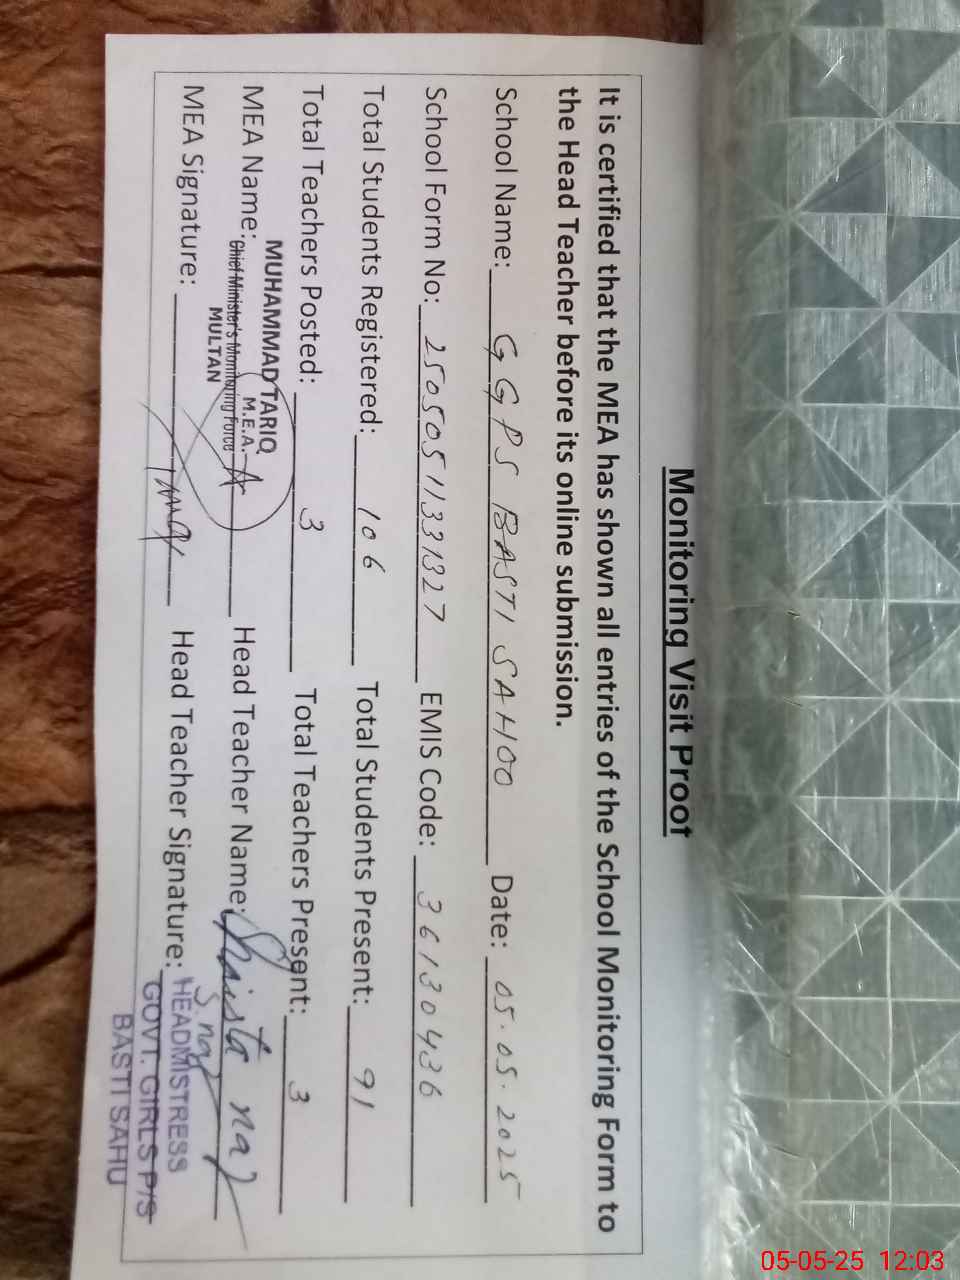 Monitoring Visit Proof
It is certified that the MEA has shown all entries of the School Monitoring Form to
the Head Teacher before its online submission.
School Name: GGPS BASTI SAHOO Date: 05.05.2025
School Form No: 25050511331327 EMIS Code: 36130436
Total Students Registered: 106 Total Students Present: 91
Total Teachers Posted: 3 Total Teachers Present: 3
MEA Name: MUHAMMAD TARIQ
M.E.A.
Chief Minister's Monitoring Force
MULTAN
Head Teacher Name: Shaista naz
MEA Signature: Head Teacher Signature: S.naz
HEADMISTRESS
GOVT. GIRLS P/S
BASTI SAHU
05-05-25 12:03